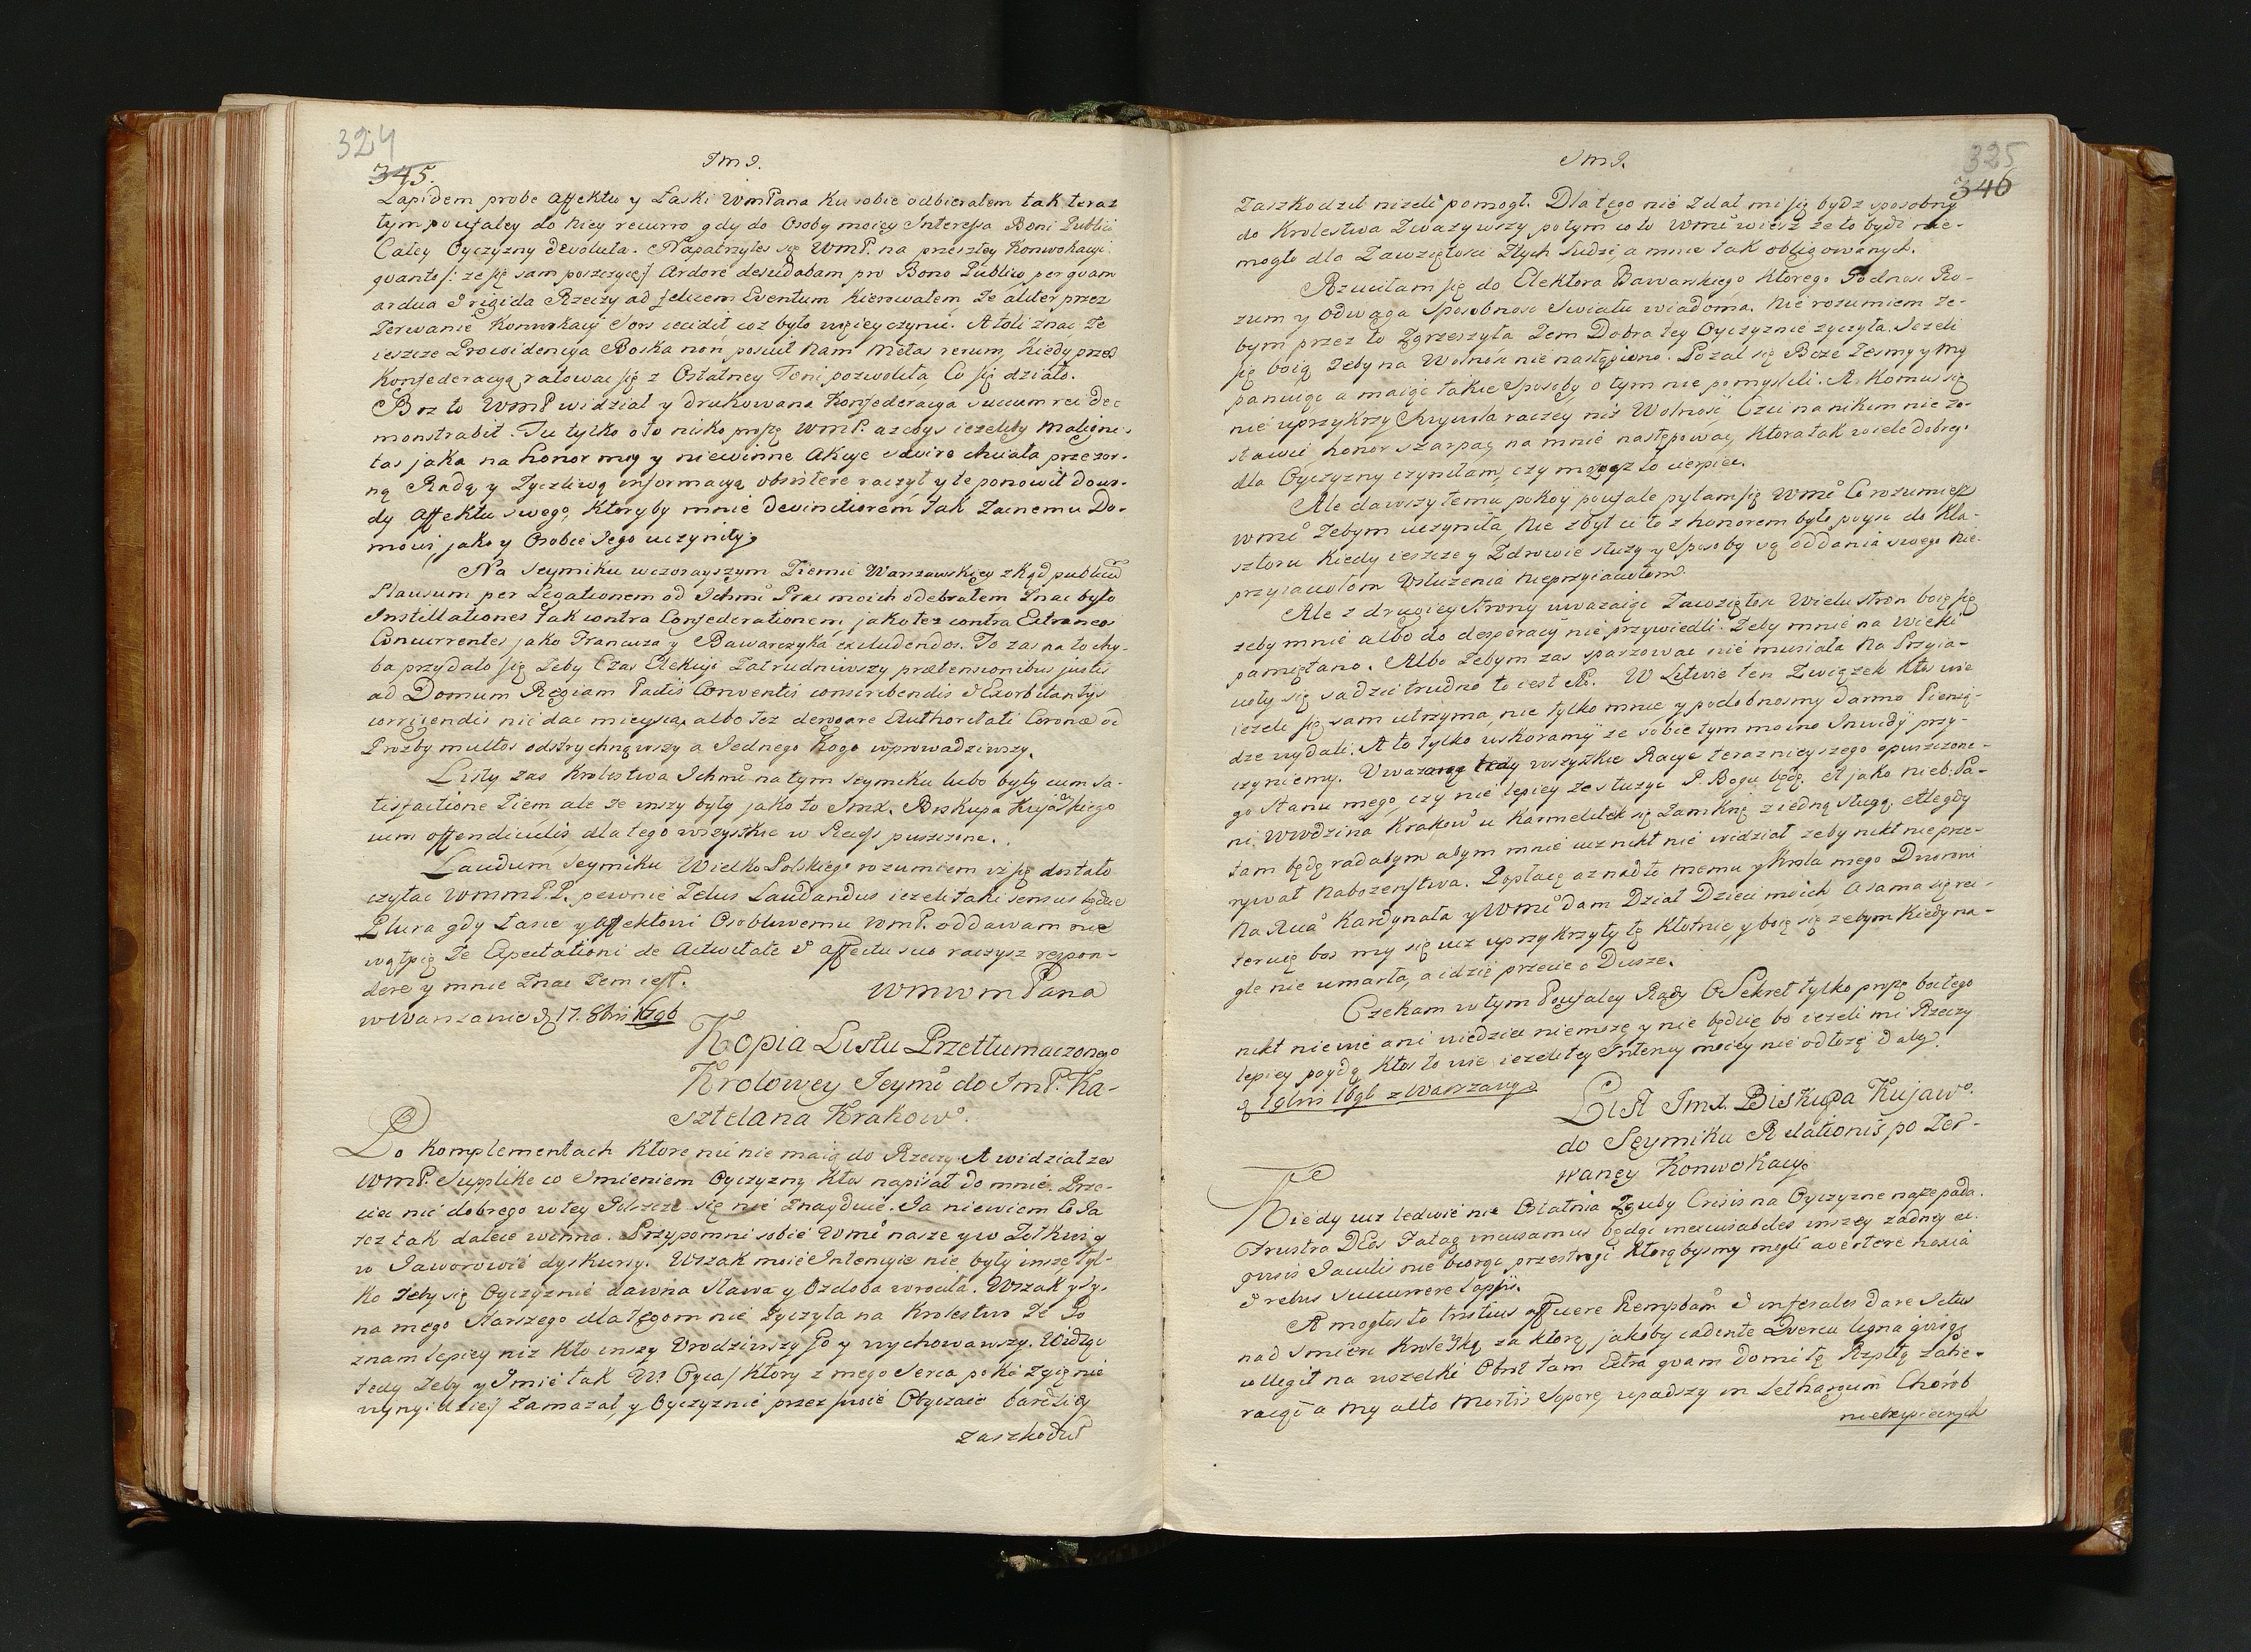 324
345.
Jm J.
Lapidem probe affektu y Łaski WmPana ku sobie odbierałem tak teraz
tym poufaley do Niey recurro gdy do Osoby moiey Interessa Boni Publici
Całey Oyczyzny devoluta. Napatrzyłeś się WmP. na przeszłey Konwokacyi
quanto /: ze się sam poszczycę :/ Ardore desudabam pro Bono Publico, per quam
ardua & rigida Rzeczy ad felicem Eventum kierowałem, ze aliter przez
Zerwanie Konwokacyi Sors cecidit coz było więcey czynić. Atoli znac ze
ieszcze Prowidencya Boska non posuit Nam Metas rerum, kiedy przez
Konfederacyą ratowac się z Ostatney Toni pozwoliła Co się działo.
Boz to WmP widział y drukowana Konfederacya suum rei de-
monstrabit. Tu tylko o to nisko proszę WmP. azebys iezeliby maligni-
tas jaka na honor moy y niewinne Akcye chciała przezor-
ną Radą y Zyczliwą informacyą obsistere raczył y te ponowił dowo-
dy affektu swego, ktoryby mnie devinctiorem tak Zacnemu Do-
mowi, jako y Osobie Jego uczyniły.
Na Seymiku wczorayszym Ziemie Warszawskiey zkąd publicum
Plausum per Legationem od Ichmci Praci moich odebrałem Znac było
Instillationes tak contra Confederationem, jako tez contra Extraneos
Concurrentes jako Francuza y Bawarczyka excludendos. To zas na to chy-
ba przydało się Zeby Czas Elekcyi Zatrudniwszy prætensionibus justis
ad Domum Regiam Pactis Conventis conscribendis & Exorbitantys
corrigendis nie dac mieysca, albo tez derogare Authoritati Coronæ od
Prozby multos odstrychnąwszy a Jednego kogo wprowadziwszy.
Listy zas Krolestwa Ichmci na tym seymiku lubo były cum sa-
tisfactione Ziem ale ze inszy były jako to Jmx. Biskupa Kujawskiego
cum offendiculis, dla tego wszystkie w Recess puszczone.
Laudum Seymiku Wielko Polskiego rozumiem iz się dostało
czytac WMMPP. pewnie Zelus Laudandus iezeli taki sensus będzie
Plura gdy Łasce y affektowi Osobliwemu WmP. oddawam nie
wątpię ze Expectationi de Activitate & affectu suo raczysz respon-
dere y mnie znac Zem iest. WmWmPana
w Warszawie d 17. 8bris 1696
Kopia Listu Przetłumaczonego
Krolowey Jeymci do JmP. Ka-
sztelana Krakow.
Po Komplementach ktore nic nie maią do Rzeczy. A widziałzes
WmP. Supplike co Imieniem Oyczyzny ktos napisał do mnie. Prze-
cie nic dobrego w tey Polszcze się nie Znayduie. Ja niewiem Co Ja
zez tak dalece winna. Przypomni sobie Wmc nasze y w Zołkwi y
w Jaworowie dyskursy. Wszak moie Intencyie nie były insze tyl-
ko zeby się Oyczyznie dawna sława y Ozdoba wrociła. Wszak y Sy-
na mego starszego dlategom nie zyczyła na Krolestwo ze Go
znam lepiey niz kto inszy Urodziwszy Go y wychowawszy. Widząc
tedy zeby y Imie tak W. Oyca / ktory z mego Serca poki zyię nie
wynydzie / zamazał, y Oyczyznie przez swoie Obyczaie bardziey
zaszkodził
Jm J.
325
346
Zaszkodził nizeli pomogł. Dla tego nie zdał mi się bydz sposobny
do Krolestwa Zwazywszy po tym co to Wmc wiesz ze to bydz nie-
mogło dla Zawziętosci Złych ludzi, a mnie tak obligowanych.
Rzuciłam się do Elektora Bawarskiego ktorego Godnosc Ro-
zum y odwaga Sposobnosc Swiatu wiadoma. Nie rozumiem ze-
bym przez to Zgrzeszyła Zem Dobra tey Oyczyznie zyczyła. Jezeli
się boią Zeby na Wolnosc nie następiono. Pozal się Boze Zesmy y My
panuiąc a maiąc takie Sposoby o tym nie pomyslili. A komu się
nie uprzykrzy Anguria raczey niz Wolnosc Czci na nikim nie zo-
stawić honor szarpac na mnie następowac, ktora tak wiele dobrego
dla Oyczyzny czyniłam, czy mogęz to cierpiec.
Ale dawszy temu pokoy poufale pytam się Wmci Co rozumiesz
Wmc zebym uczyniła, Nie zbyt ci to z honorem było poysc do Kla-
sztoru kiedy ieszcze y Zdrowie słuzy y Sposoby są oddania swego Nie-
przyiaciołom Usłuzenia Nieprzyiaciołom.
Ale z drugiey strony uwazaiąc Zawziętosc Wielu stron boię się
zeby mnie albo do desperacyi nie przywiedli. Zeby mnie na wieki
pamiętano. Albo Zebym zas szarzowac nie musiała Na Przyia-
cioły się sadzic trudno to iest Nr. W Litwie ten Związek kto wie
iezeli się sam utrzyma, nie tylko mnie y podobnosmy darmo Pienią-
dze wydali. A to tylko wskoramy ze sobie tym mocno Inwidyi przy-
czyniemy. Uwazaiąc tedy wszystkie Racye teraznieyszego opuszczone-
go Stanu mego, czy nie lepiey ze słuzyc P. Bogu będę. A jako nieb: Pa-
ni Wwdzina Krakow u Karmelitek się Zamknę z iedną sługą. Ale gdy
tam będę radabym abym mnie iuz nikt nie widział zeby nikt nie prze-
rywał Nabozenstwa. Popłacę aznadto memu y Krola mego Dworowi
Na Rucc Kardynała y Wmci dam Dział Dzieci moich A sama się re-
teruię bos my się iuz uprzykrzyły tę Kłotnie, y boię się zebym kiedy na-
gle nie umarła, a idzie przecie o Dusze.
Czekam w tym Poufałey Rady O Sekret tylko proszę bo tego
nikt nie wie ani wiedziec niemoze y nie będzie bo iezeli mi Rzeczy
lepiey poydą kto to wie iezeli tey Intencyi moiey nie odłozę daley.
d 19bris 1696 z Warszawy
List Jmx. Biskupa Kujawo.
do Seymiku Relationis po Zer-
waney Konwokacyi.
Kiedy iuz ledwie nie Ostatnia Zguby Crisis na Oyczyzne nasze pada.
Frustra Deos Fataq incusamus będąc inexcusabiles inszey zadney ex
genesis Saeculis nie biorąc przestrogi ktorą bysmy mogli avertere noxia
& rebus succurrere lapsis.
A mogłoż to tristius affluere Rempubam & inferales dare Ictus
nad smierc Krolewską, za ktorą jakoby cadente Quercu ligna quisq
colligit na wszelki Obrot tam Extra quam domi tę Rzpltą zabie-
raiąc a My alto Mortis Sopore upadszy in Lethargum Chorob
niebezpiecznych